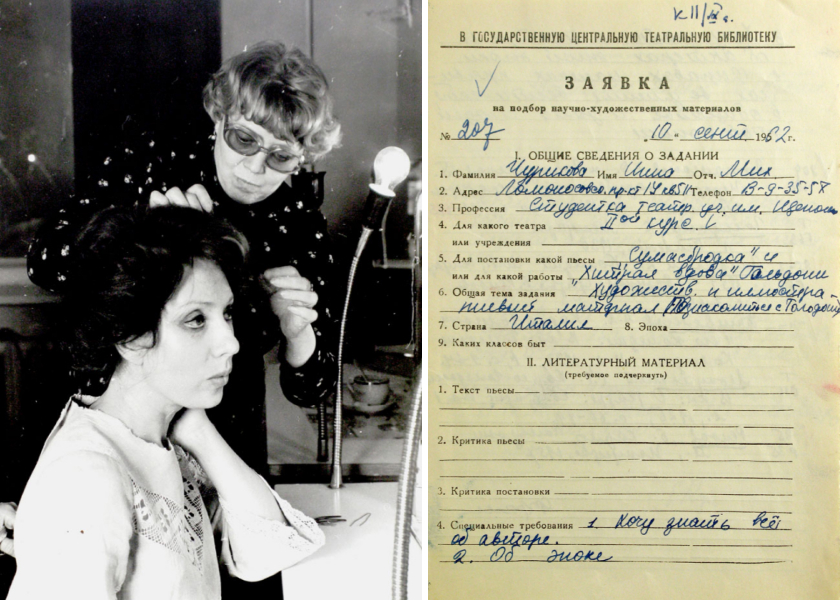 КП/IX г.
В ГОСУДАРСТВЕННУЮ ЦЕНТРАЛЬНУЮ ТЕАТРАЛЬНУЮ БИБЛИОТЕКУ
ЗАЯВКА
на подбор научно-художественных материалов
№ 207 „10“ сент 1962 г.
I. ОБЩИЕ СВЕДЕНИЯ О ЗАДАНИИ
1. Фамилия Чурикова Имя Инна Отч. Мих
2. Адрес Ломоносовск. пр-кт Телефон В-9-35-58
3. Профессия Студентка театр. уч. им. Щепкин
4. Для какого театра курс
или учреждения
5. Для постановки какой пьесы „Сумасбродка" и
или для какой работы „Хитрая вдова" Гольдони
6. Общая тема задания Художеств. и иллюстра-
тивный материал Познакомиться с Гольдони
7. Страна Италия 8. Эпоха
9. Каких классов быт
II. ЛИТЕРАТУРНЫЙ МАТЕРИАЛ
(требуемое подчеркнуть)
1. Текст пьесы
2. Критика пьесы
3. Критика постановки
4. Специальные требования 1. Хочу знать всё
об авторе.
2. Об эпохе